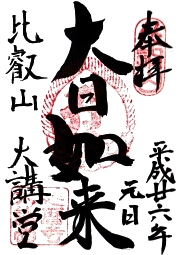 奉拝
平成廿六年
元日
大日如来
比叡山
大講堂